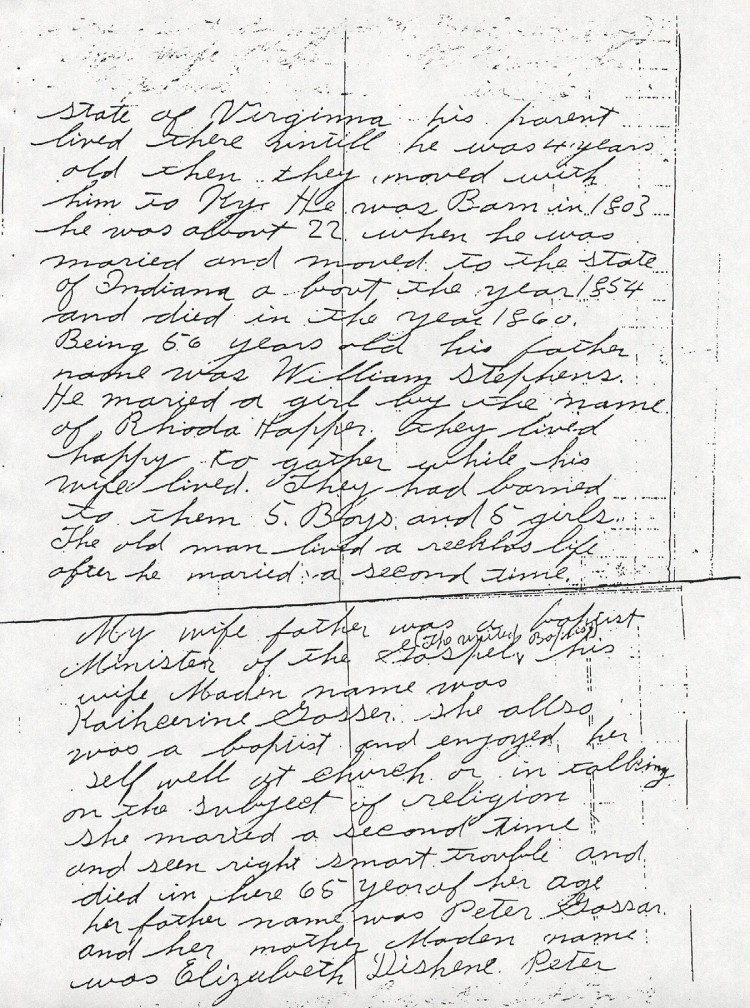 state of Virginna his parent
lived there untill he was 4 years
old then they moved with
him to Ky. He was Barn in 1803
he was about 22 when he was
maried and moved to the state
of Indiana a bout the year 1854
and died in the year 1860.
Being 56 years old his father
name was William Stephens.
He maried a girl by the name
of Rhoda Happer. they lived
happy to gather while his
wife lived. They had barned
to them 5. Boys and 5 girls.
The old man lived a reckless life
after he maried a second time.
My wife father was a baptist
(The united Baptist)
Minister of the Gospel, his
wife Maden name was
Katherine Gosser. she allso
was a baptist and enjoyed her
self well at church or in talking
on the subject of religion
she maried a second time
and seen right smart trouble and
died in here 65 year of her age
her father name was Peter Gossar
and her mother Maden name
was Elizabeth Dishene. Peter